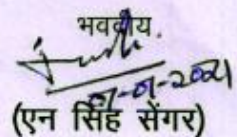 भवदीय
07-01-2021
(एन सिंह सेंगर)